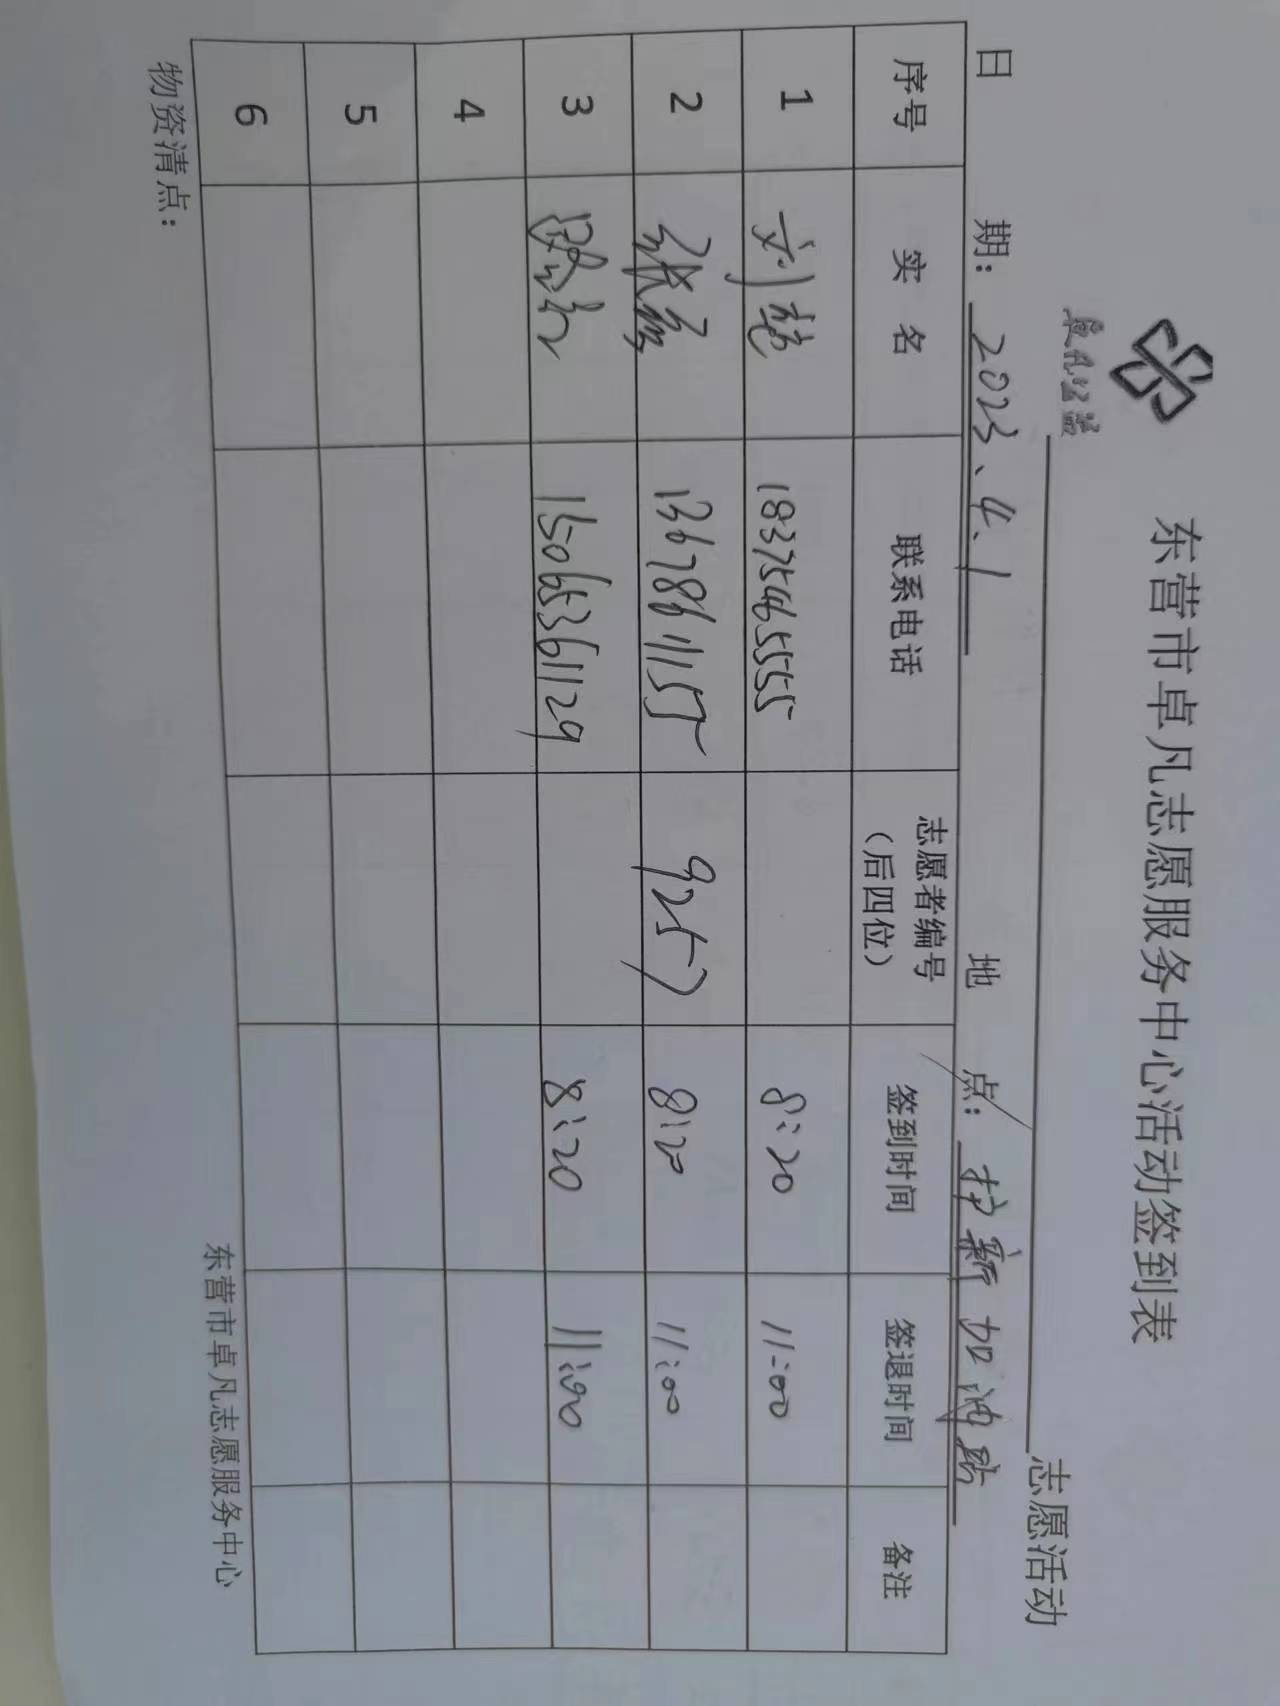 东营市卓凡志愿服务中心活动签到表
卓凡公益
志愿活动
日 期：2023、4、1 地 点：护新加油站
序号 实 名 联系电话 志愿者编号（后四位） 签到时间 签退时间 备注
1 刘 18375465555 8:20 11:00
2 张 13678611155 9257 8:20 11:00
3 15065361129 8:20 11:00
4
5
6
物资清点：
东营市卓凡志愿服务中心